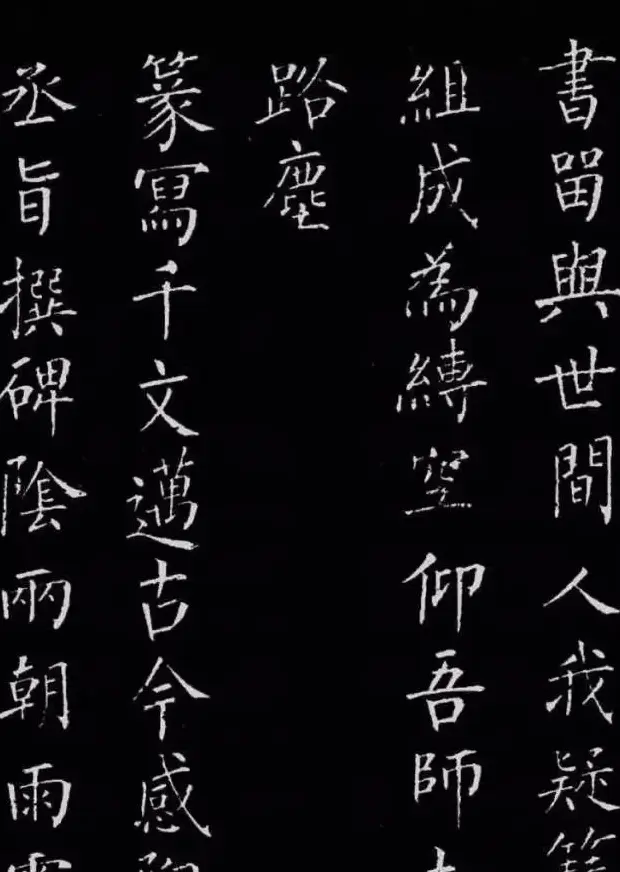 書畱與世間人我疑
組成為縛空仰吾師
路塵
篆寫千文邁古今感
丞旨撰碑陰兩朝雨